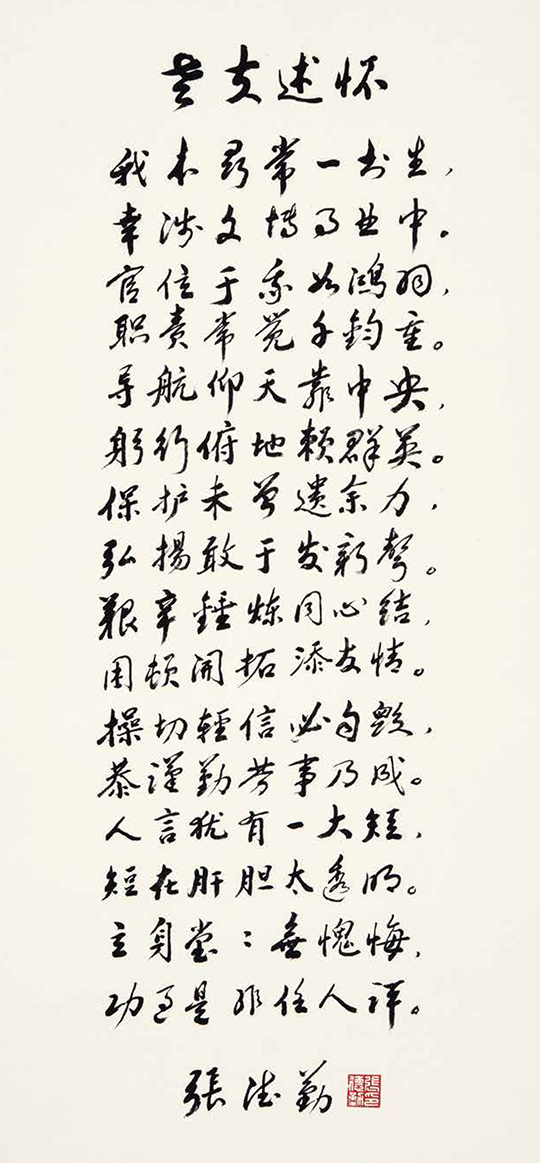 老友述怀
我本寻常一书生，
幸涉文博历世中。
官位于我如鸿羽，
职责常觉千钧重。
导航仰天靠中央，
躬行俯地赖群英。
保护未曾遗余力，
弘揚敢于发新声。
艰辛錘炼同心结，
困顿開拓添友情。
操切輕信必自毁，
恭謹勤劳事乃成。
人言犹有一大短，
短在肝胆太透明。
立身堂堂無愧悔，
功过是非任人评。
張德勤
張德勤印